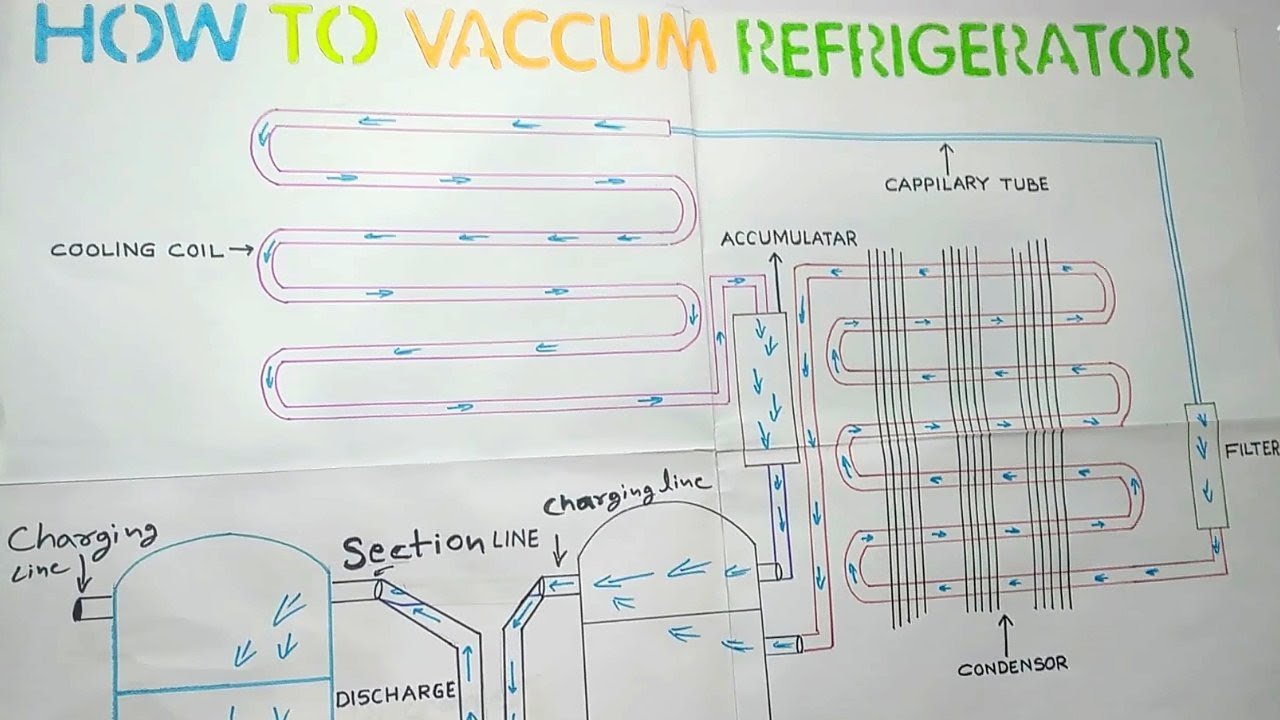 HOW TO VACCUM REFRIGERATOR
CAPPILARY TUBE
COOLING COIL
ACCUMULATAR
FILTER
Charging line
Charging
Line
Section LINE
DISCHARGE
CONDENSOR